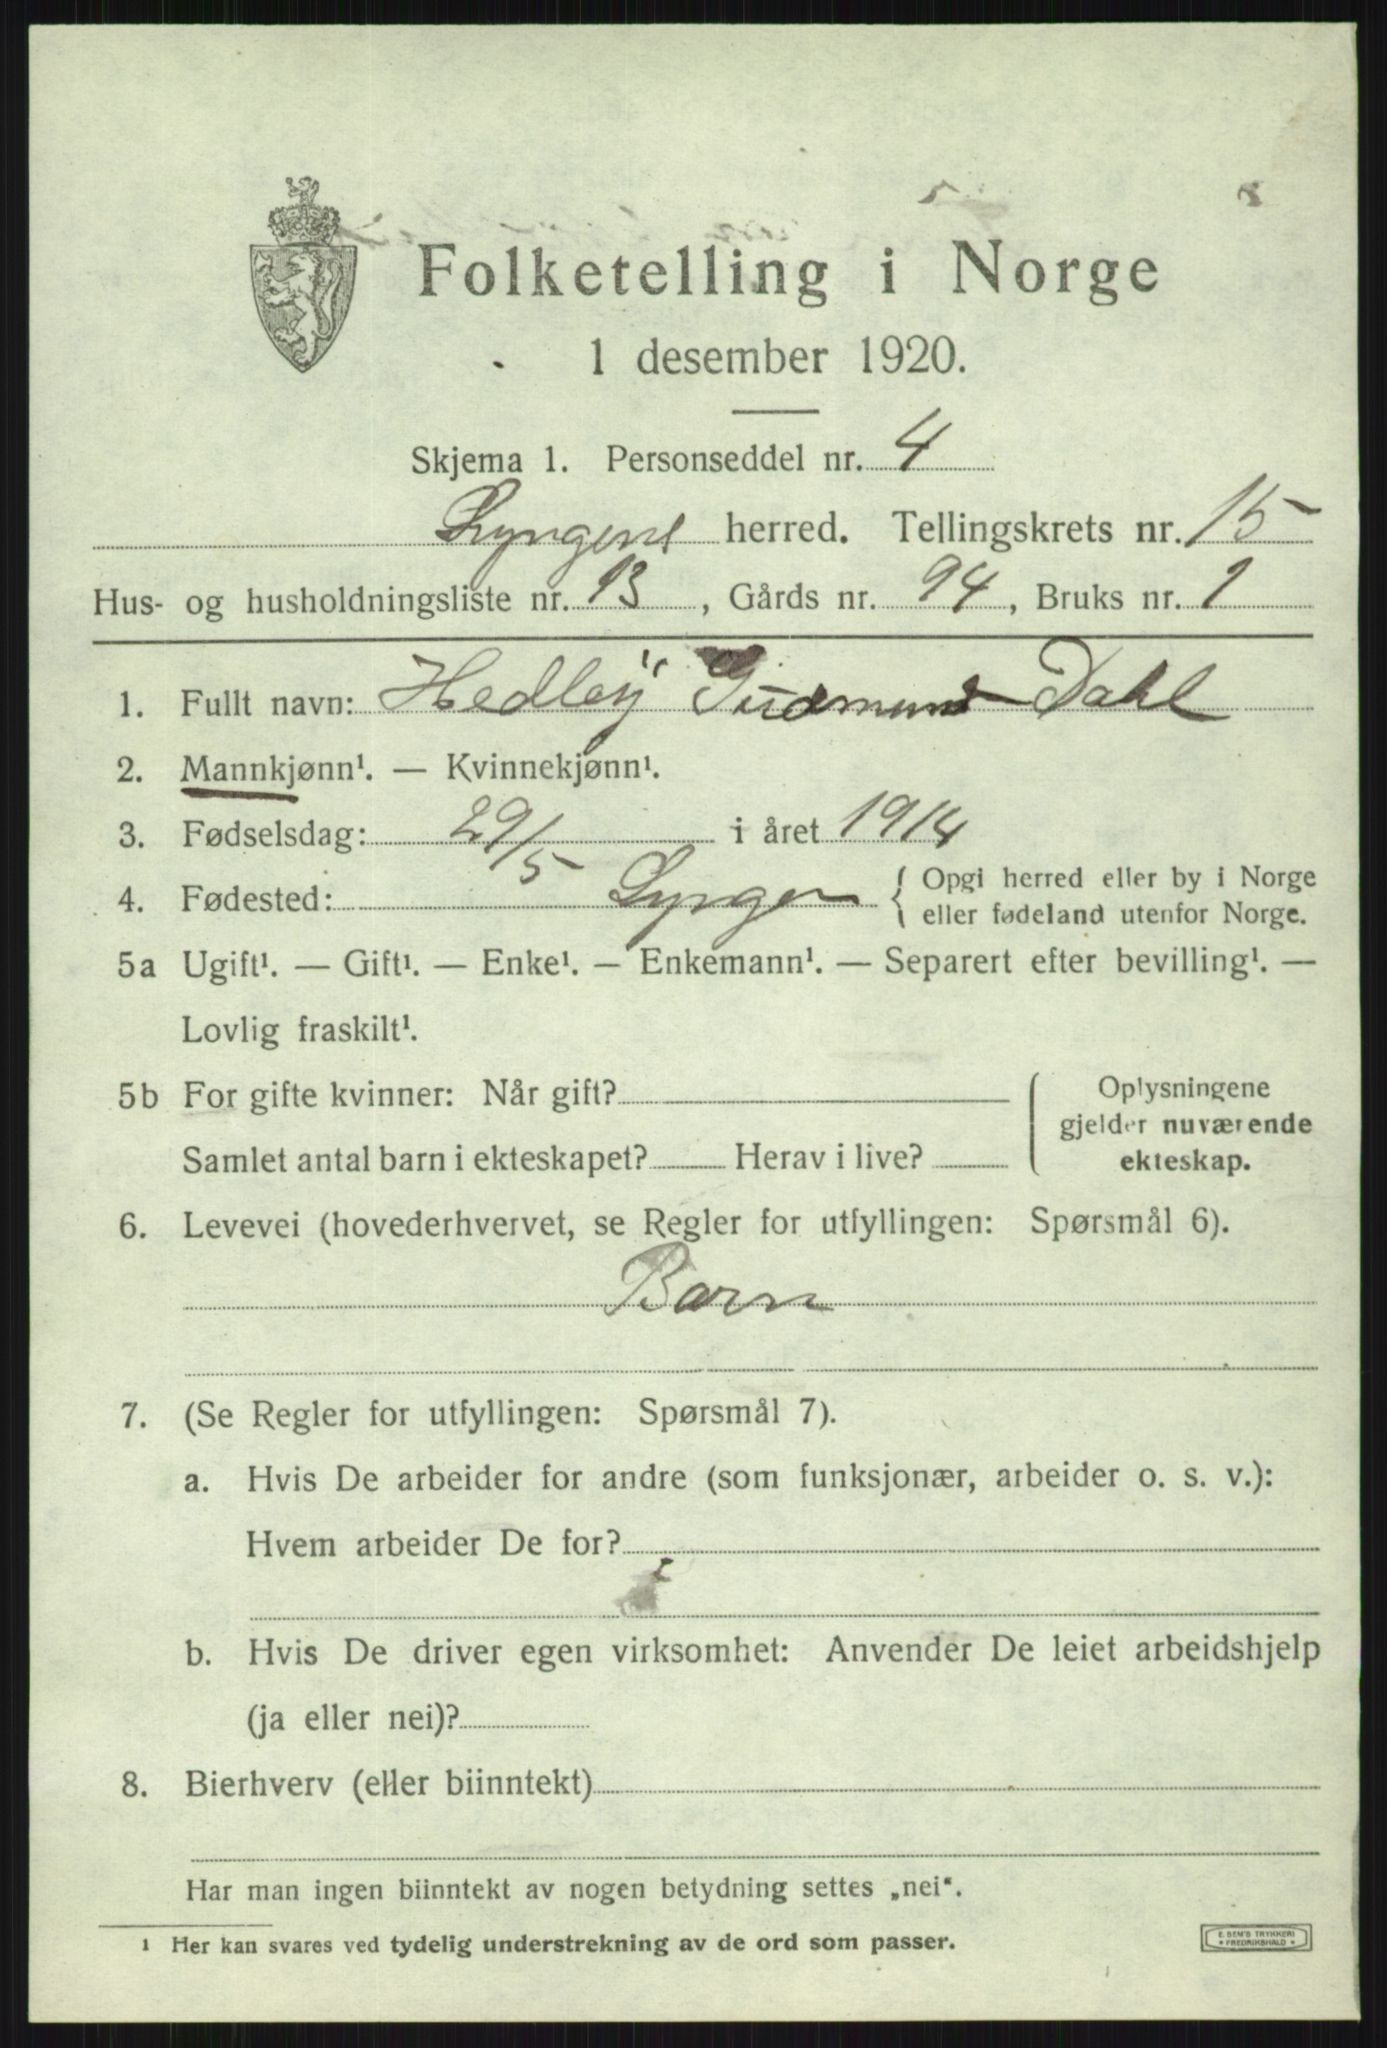 Folketelling i Norge
1 desember 1920.
Skjema 1. Personseddel nr. 4
Lyngens herred. Tellingskrets nr. 15
Hus- og husholdningsliste nr. 13, Gårds nr. 94, Bruks nr. 1
1. Fullt navn: Hedley Gudmund Dahl
2. Mannkjønn¹. — Kvinnekjønn¹.
3. Fødselsdag: 29/5 i året 1914
4. Fødested: Lyngen { Opgi herred eller by i Norge
eller fødeland utenfor Norge.
5a Ugift¹. — Gift¹. — Enke¹. — Enkemann¹. — Separert efter bevilling¹. —
Lovlig fraskilt¹.
5b For gifte kvinner: Når gift?
Samlet antal barn i ekteskapet? Herav i live?
{ Oplysningene
gjelder nuværende
ekteskap.
6. Levevei (hovederhvervet, se Regler for utfyllingen: Spørsmål 6).
Barn
7. (Se Regler for utfyllingen: Spørsmål 7).
a. Hvis De arbeider for andre (som funksjonær, arbeider o. s. v.):
Hvem arbeider De for?
b. Hvis De driver egen virksomhet: Anvender De leiet arbeidshjelp
(ja eller nei)?
8. Bierhverv (eller biinntekt)
Har man ingen biinntekt av nogen betydning settes „nei“.
¹ Her kan svares ved tydelig understrekning av de ord som passer.
E. SEM'S TRYKKERI
* FREDRIKSHALD *